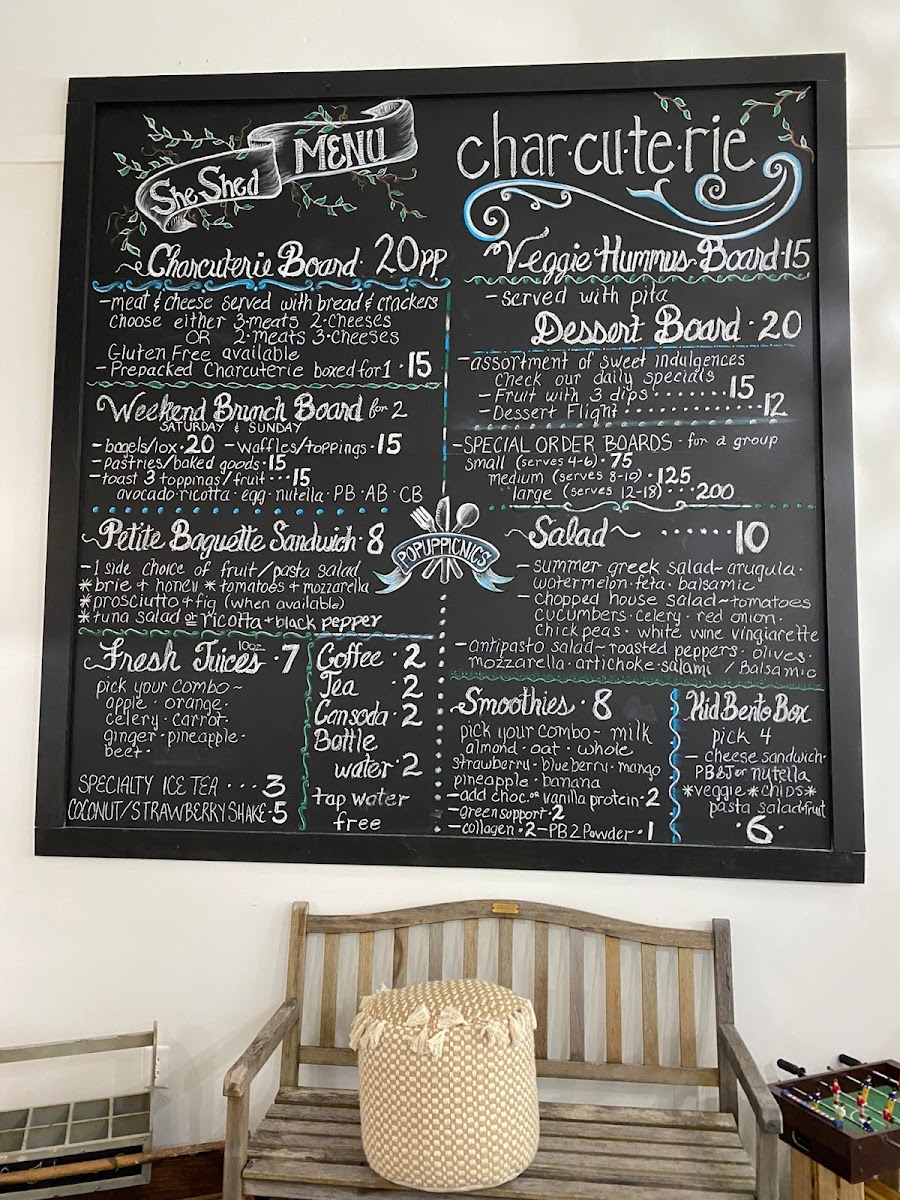 She Shed MENU
Charcuterie Board · 20pp
- meat & cheese served with bread & crackers
Choose either 3·meats 2·Cheeses
OR 2·meats 3·Cheeses
Gluten Free available
- Prepacked Charcuterie boxed for 1 · 15
Weekend Brunch Board for 2
SATURDAY & SUNDAY
- bagels/lox · 20 - waffles/toppings · 15
- pastries/baked goods · 15
- toast 3 toppings/fruit · · · 15
avocado · ricotta · egg · nutella · PB · AB · CB
Petite Baguette Sandwich · 8
- 1 side choice of fruit/pasta salad
* brie + honey * tomatoes & mozzarella
* prosciutto & fig (when available)
* tuna salad or ricotta + black pepper
Fresh Juices 10oz · 7
pick your combo ~
apple · orange ·
celery · carrot ·
ginger · pineapple ·
beet ·
SPECIALTY ICE TEA · · · 3
COCONUT/STRAWBERRY SHAKE · 5
Coffee · 2
Tea · 2
Can soda · 2
Bottle
water · 2
tap water
free
POPUPPICNICS
char·cu·te·rie
Veggie Hummus Board · 15
- served with pita
Dessert Board · 20
- assortment of sweet indulgences
Check our daily specials
- Fruit with 3 dips · · · · · · · 15
- Dessert Flight · · · · · · · · · · 12
- SPECIAL ORDER BOARDS · for a group
small (serves 4-6) · 75
medium (serves 8-10) · 125
large (serves 12-18) · · · 200
~Salad~ · · · · · · 10
- summer greek salad ~ arugula ·
watermelon · feta · balsamic
- chopped house salad ~ tomatoes
cucumbers · celery · red onion ·
chick peas · white wine vingiarette
- antipasto salad ~ roasted peppers · olives ·
mozzarella · artichoke · salami / Balsamic
Smoothies · 8
pick your combo ~ milk
almond · oat · whole
strawberry · blueberry · mango
pineapple · banana
- add choc. or vanilla protein · 2
- green support · 2
- collagen · 2 - PB2 Powder · 1
Kid Bento Box
pick 4
- cheese sandwich ·
PB&J or nutella
* veggie * chips *
pasta salad * fruit
· 6 ·